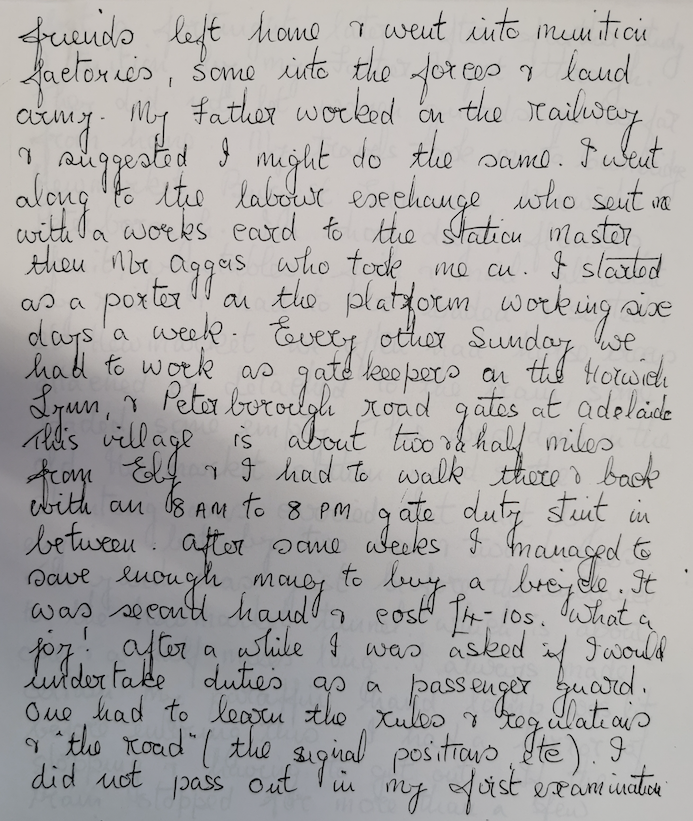 friends left home & went into munition
factories, some into the forces & land
army. My Father worked on the railway
& suggested I might do the same. I went
along to the labour exchange who sent me
with a works card to the station master
then Mr Aggas who took me on. I started
as a porter on the platform working six
days a week. Every other Sunday we
had to work as gate keepers on the Norwich
Lynn, & Peterborough road gates at Adelaide
This village is about two & a half miles
from Ely & I had to walk there & back
with an 8 AM to 8 PM gate duty stint in
between. After some weeks I managed to
save enough money to buy a bicycle. It
was second hand & cost £4-10s. What a
joy! After a while I was asked if I would
undertake duties as a passenger guard.
One had to learn the rules & regulations
& "the road" (the signal positions etc). I
did not pass out in my first examination